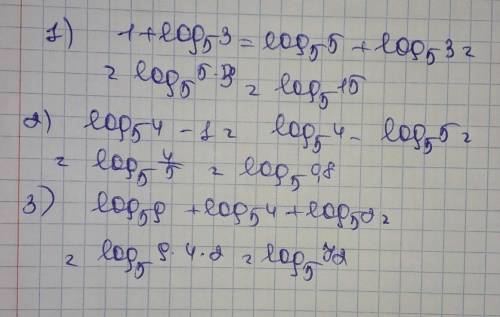 1) 1 + log₅3 = log₅5 + log₅3 =
= log₅5·3 = log₅15
2) log₅4 - 1 = log₅4 - log₅5 =
= log₅4/5 = log₅0,8
3) log₅9 + log₅4 + log₅2 =
= log₅9·4·2 = log₅72